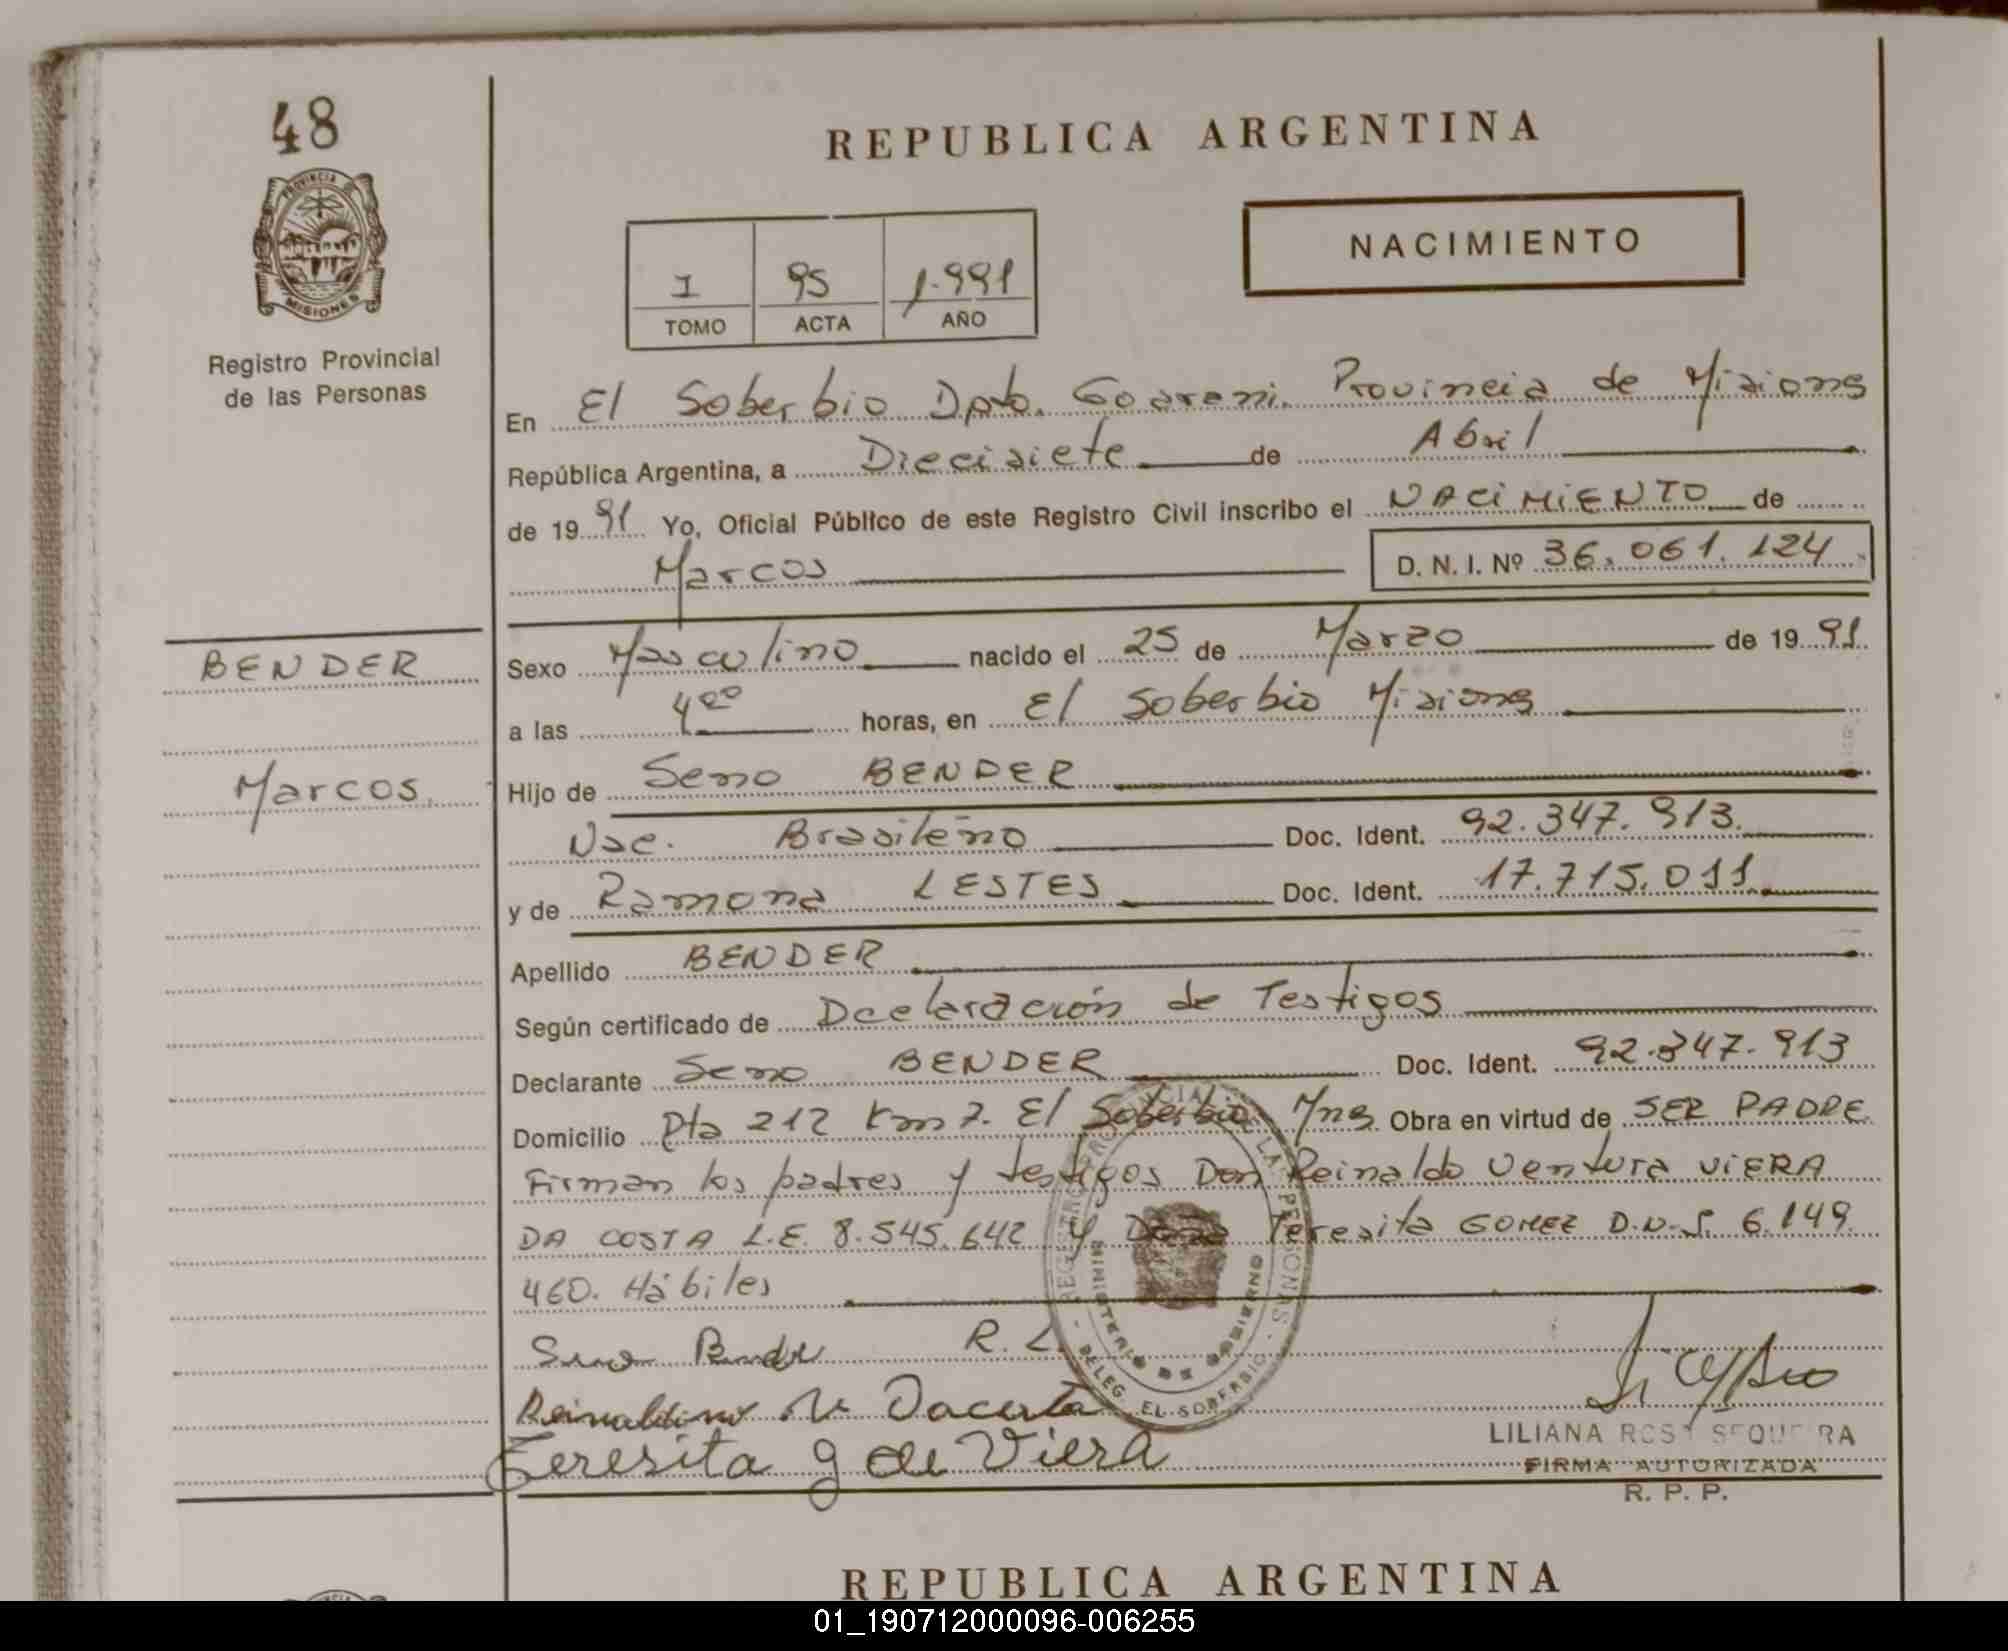 48
PROVINCIA
MISIONES
Registro Provincial
de las Personas
REPUBLICA ARGENTINA
NACIMIENTO
I 95 1.991
TOMO ACTA AÑO
En El Soberbio Dpto. Goarani. Provincia de Misiones
República Argentina, a Diecisiete de Abril
de 19 91 Yo, Oficial Público de este Registro Civil inscribo el NACIMIENTO de
Marcos D. N. I. Nº 36.061.124
BENDER
Marcos
Sexo Masculino nacido el 25 de Marzo de 19 91
a las 4 horas, en El Soberbio Misiones
Hijo de Seno BENDER
Nac. Brasileño Doc. Ident. 92.347.913.
y de Ramona LESTES Doc. Ident. 17.715.011
Apellido BENDER
Según certificado de Declaración de Testigos
Declarante Seno BENDER Doc. Ident. 92.347.913
Domicilio Rta 212 Km 7. El Soberbio Mnes Obra en virtud de SER PADRE
Firman los padres y testigos Don Reinaldo Ventura VIERA
DA COSTA L.E. 8.545.642 y Doña Teresita GOMEZ D.N.I. 6.149.
460. Hábiles
Seno Bender R. L.
Dacosta
Teresita g de Viera
REGISTRO PROVINCIAL DE LAS PERSONAS
MINISTERIO DE GOBIERNO
DELEG. EL SOBERBIO
LILIANA ROSA SEQUEIRA
FIRMA AUTORIZADA
R. P. P.
REPUBLICA ARGENTINA
01_190712000096-006255